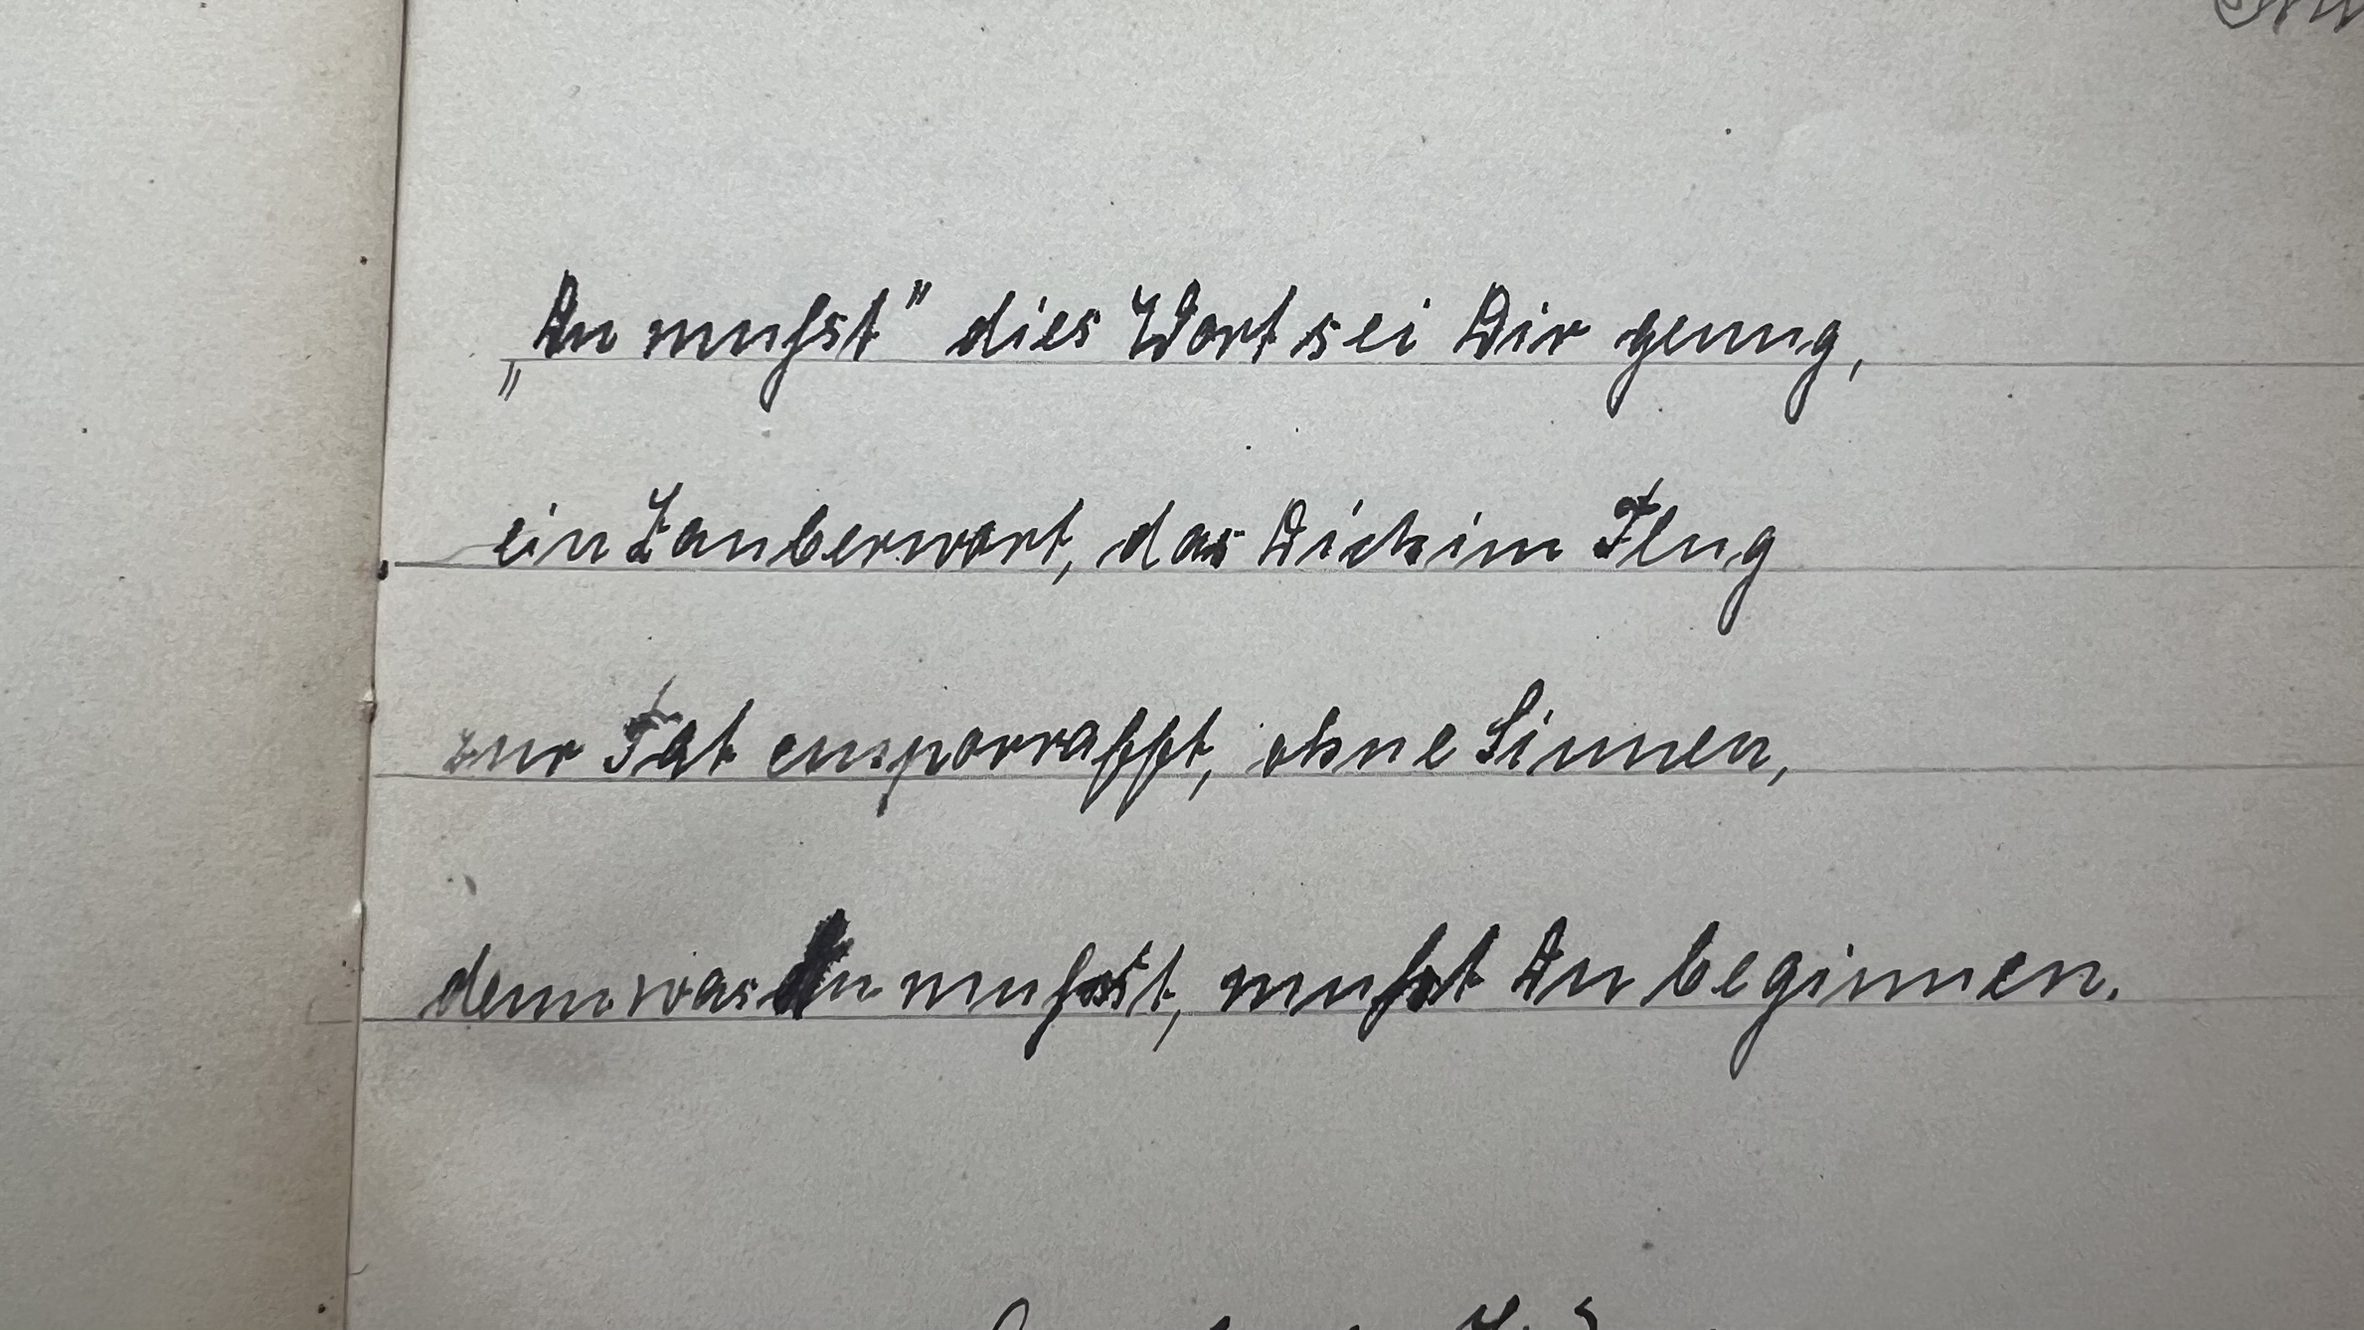 „Du mußst" dies Wort sei Dir genug,
ein Zauberwort, das Dich im Flug
zur Tat emporrafft, ohne Sinnen,
denn was Du mußst, mußt Du beginnen.